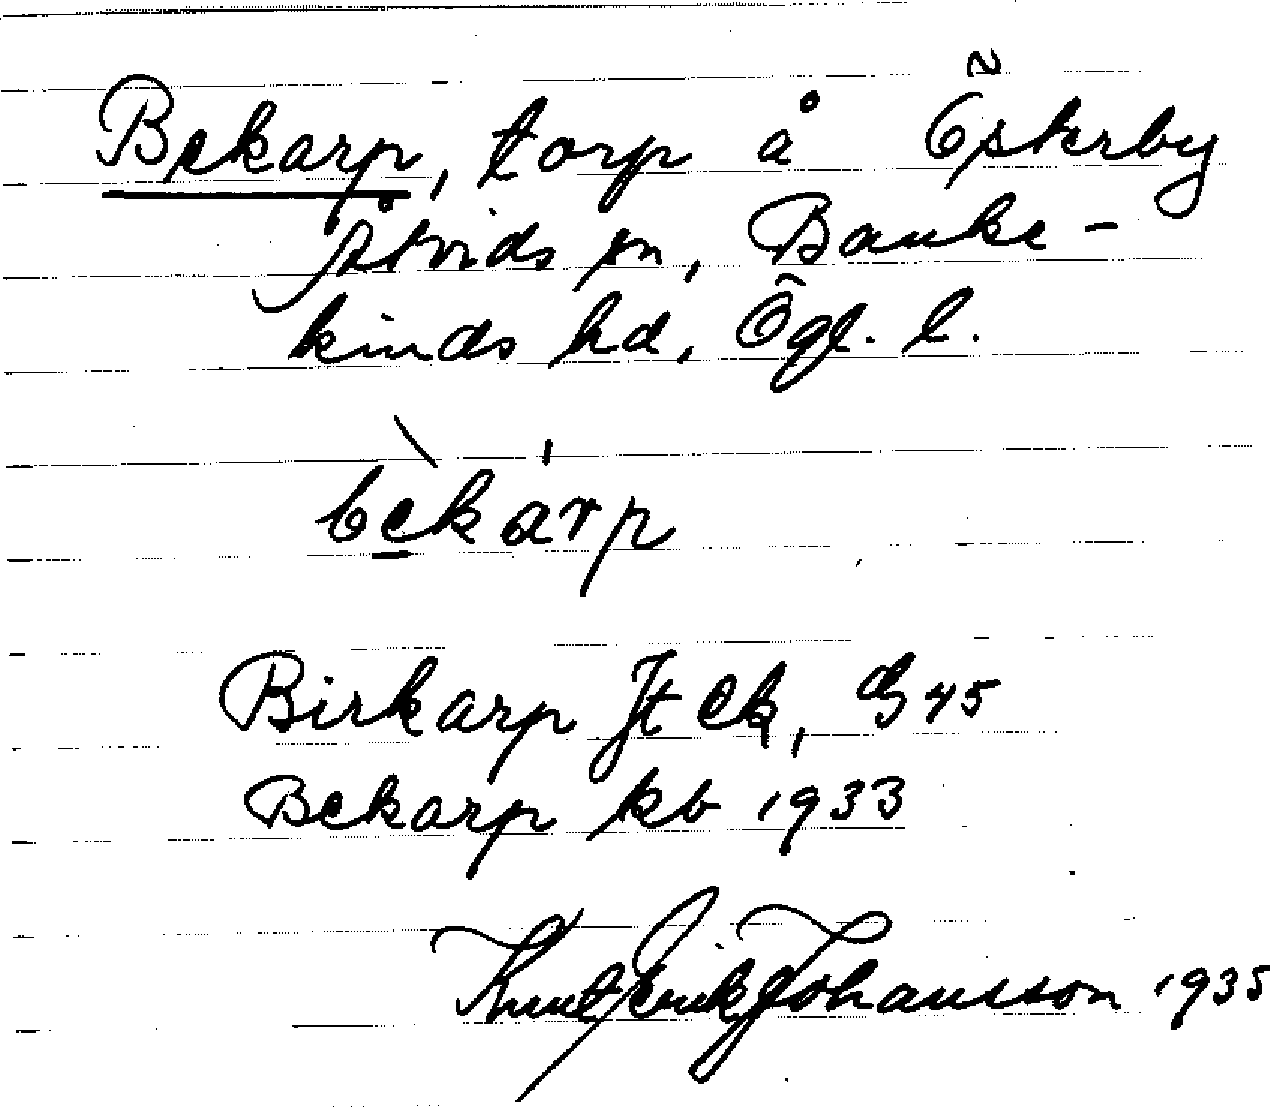 Bekarp, torp å Österby
Åtvids sn, Banke-
kinds hd, Ögl. l.
bekarp
Birkarp Jt Ek, G 45
Bekarp kb 1933
Knut Erik Johansson 1935